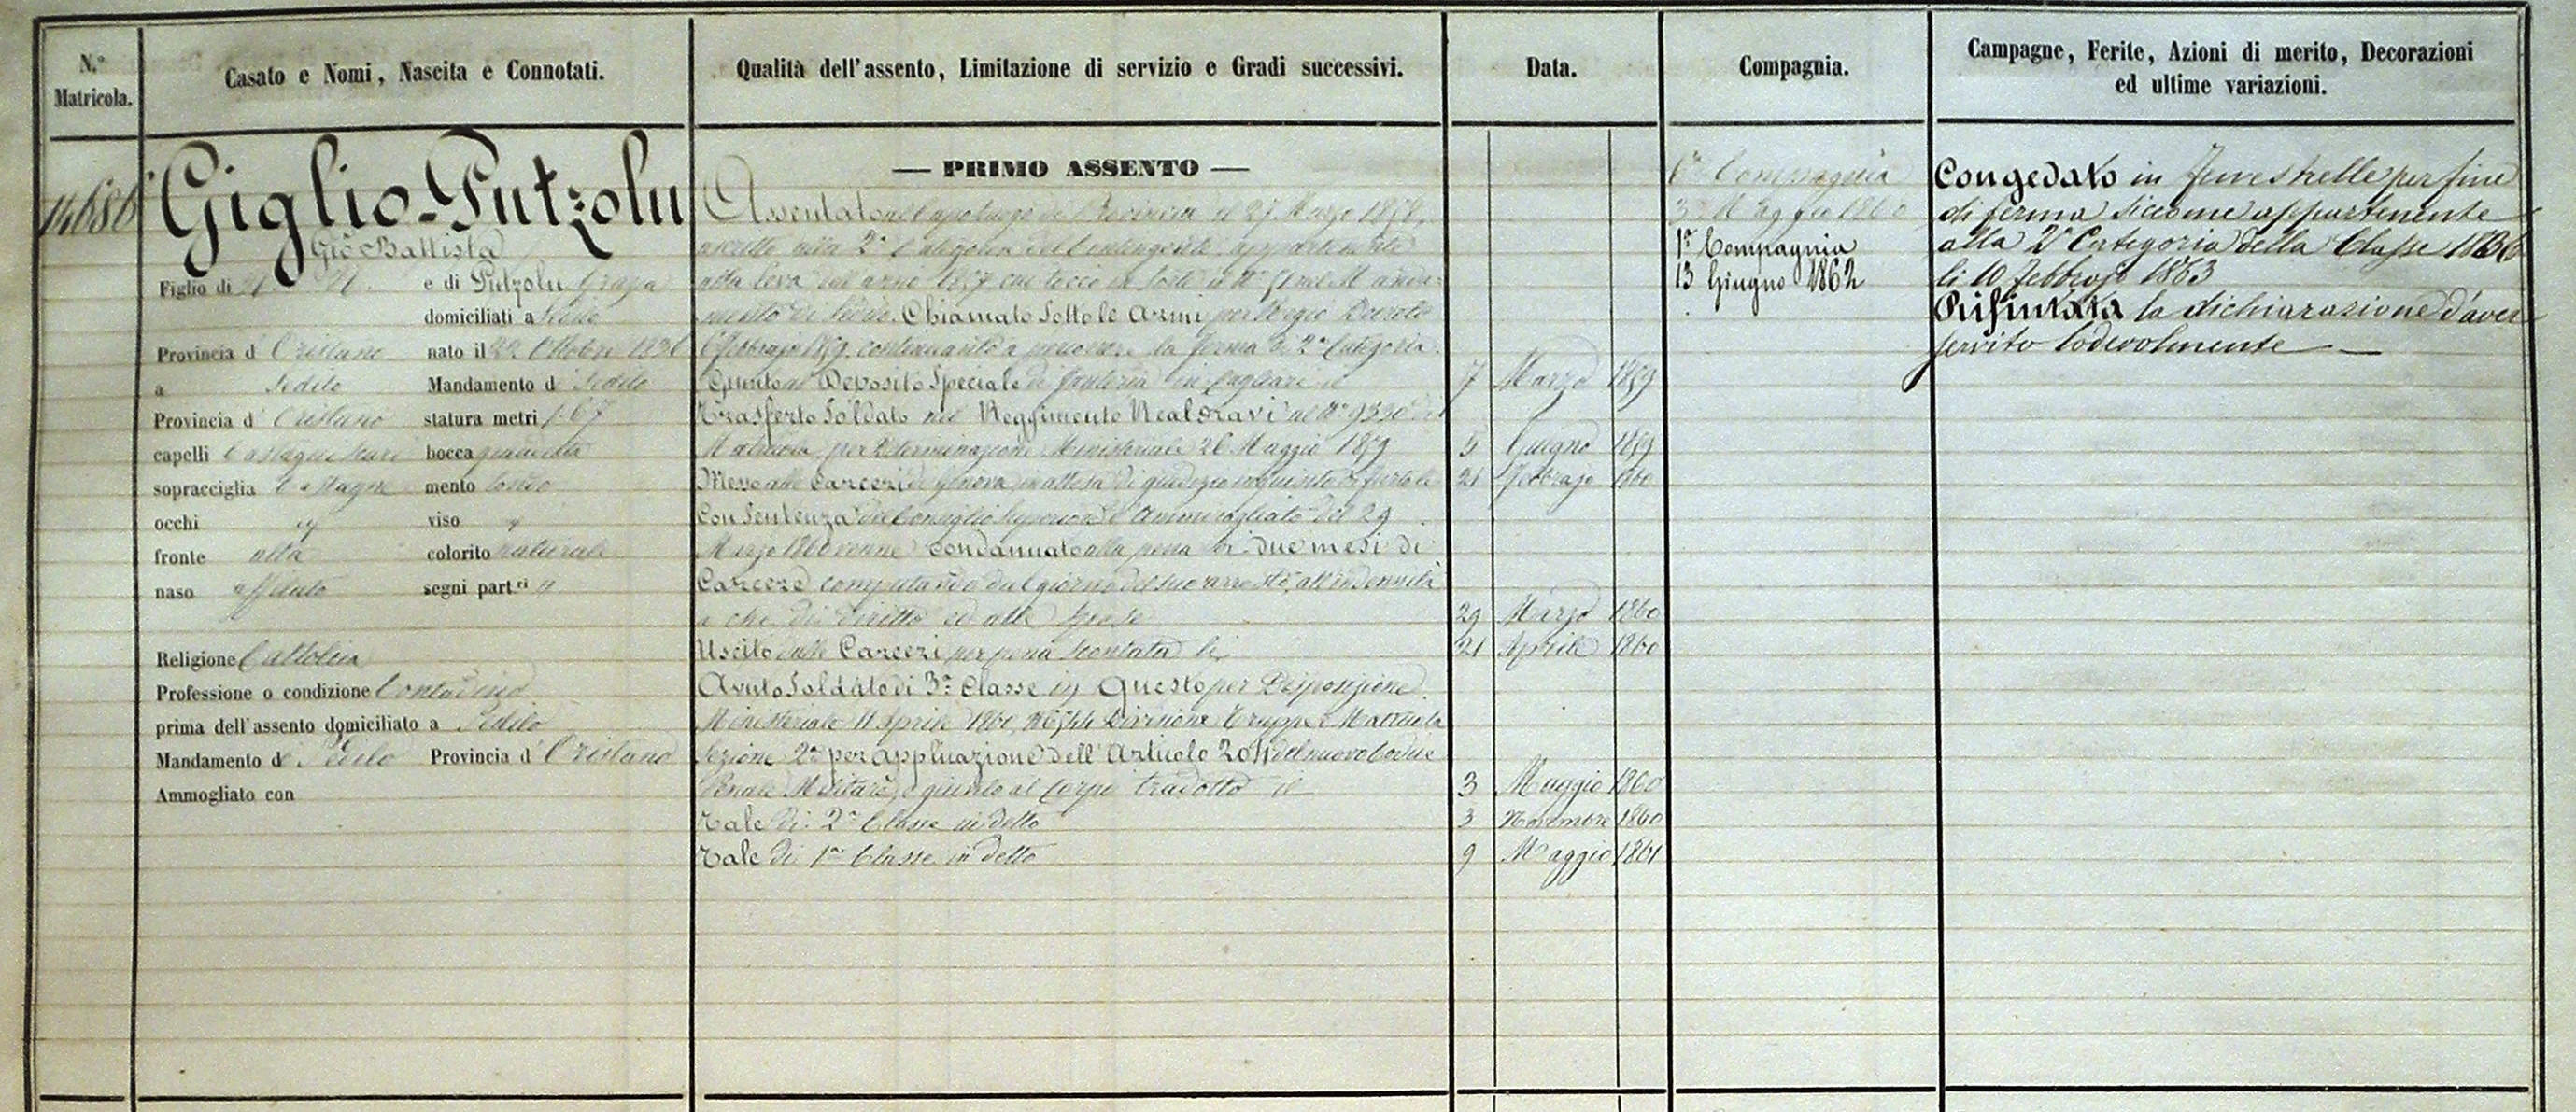 N.° Matricola.
Casato e Nomi, Nascita e Connotati.
Qualità dell'assento, Limitazione di servizio e Gradi successivi.
Data.
Compagnia.
Campagne, Ferite, Azioni di merito, Decorazioni
ed ultime variazioni.
14686
Giglio-Putzolu
Gio Battista
Figlio di N. N. e di Putzolu Grazia
domiciliati a Sedilo
Provincia d' Oristano nato il 22 Ottobre 1836
a Sedilo Mandamento di Sedilo
Provincia d' Oristano statura metri 1.67
capelli Castagni bocca
sopracciglia Castagne mento tondo
occhi " viso "
fronte alta colorito naturale
naso affilato segni part.ri "
Religione Cattolica
Professione o condizione Contadino
prima dell'assento domiciliato a Sedilo
Mandamento di Sedilo Provincia d' Oristano
Ammogliato con
— PRIMO ASSENTO —
Assentato nel Capoluogo di Provincia il 27 Marzo 1858,
ascritto alla 2a Categoria del Contingente, appartenente
alla leva dell'anno 1857 cui toccò in sorte il No nel Manda-
mento di Sedilo. Chiamato Sotto le Armi per Regio Decreto
Febbrajo 1859 continuando a percorrere la ferma di 2a Categoria.
Giunto al Deposito Speciale di fanteria in Cagliari il 7 Marzo 1859
Trasferto Soldato nel Reggimento Real Navi al No 9330 di
Matricola per Determinazione Ministeriale 26 Maggio 1859 5 Giugno 1859
Messo alle Carceri di Genova in attesa di giudizio inquisito di furto li 21 Febbrajo 1860
Con Sentenza del Consiglio Superiore d'Ammiragliato del 29
Marzo 1860 venne Condannato alla pena di due mesi di
Carcere computando dal giorno del suo arresto, all'indennità
a che di diritto ed alle spese 29 Marzo 1860
Uscito dalle Carceri per pena scontata li 21 Aprile 1860
Avuto Soldato di 3a Classe in Questo per Disposizione
Ministeriale 11 Aprile 1860, Divisione Truppe e Matricola
Sezione 2a per applicazione dell'Articolo 204 del nuovo Codice
Penale Militare, e giunto al Corpo tradotto il 3 Maggio 1860
Tale di 2a Classe in detto 3 Novembre 1860
Tale di 1a Classe in detto 9 Maggio 1861
6a Compagnia
3 Maggio 1860
1a Compagnia
13 Giugno 1862
Congedato in Fenestrelle per fine
di ferma siccome appartenente
alla 2a Categoria della Classe 1836
li 10 Febbrajo 1863
Rifiutata la dichiarazione d'aver
servito lodevolmente —